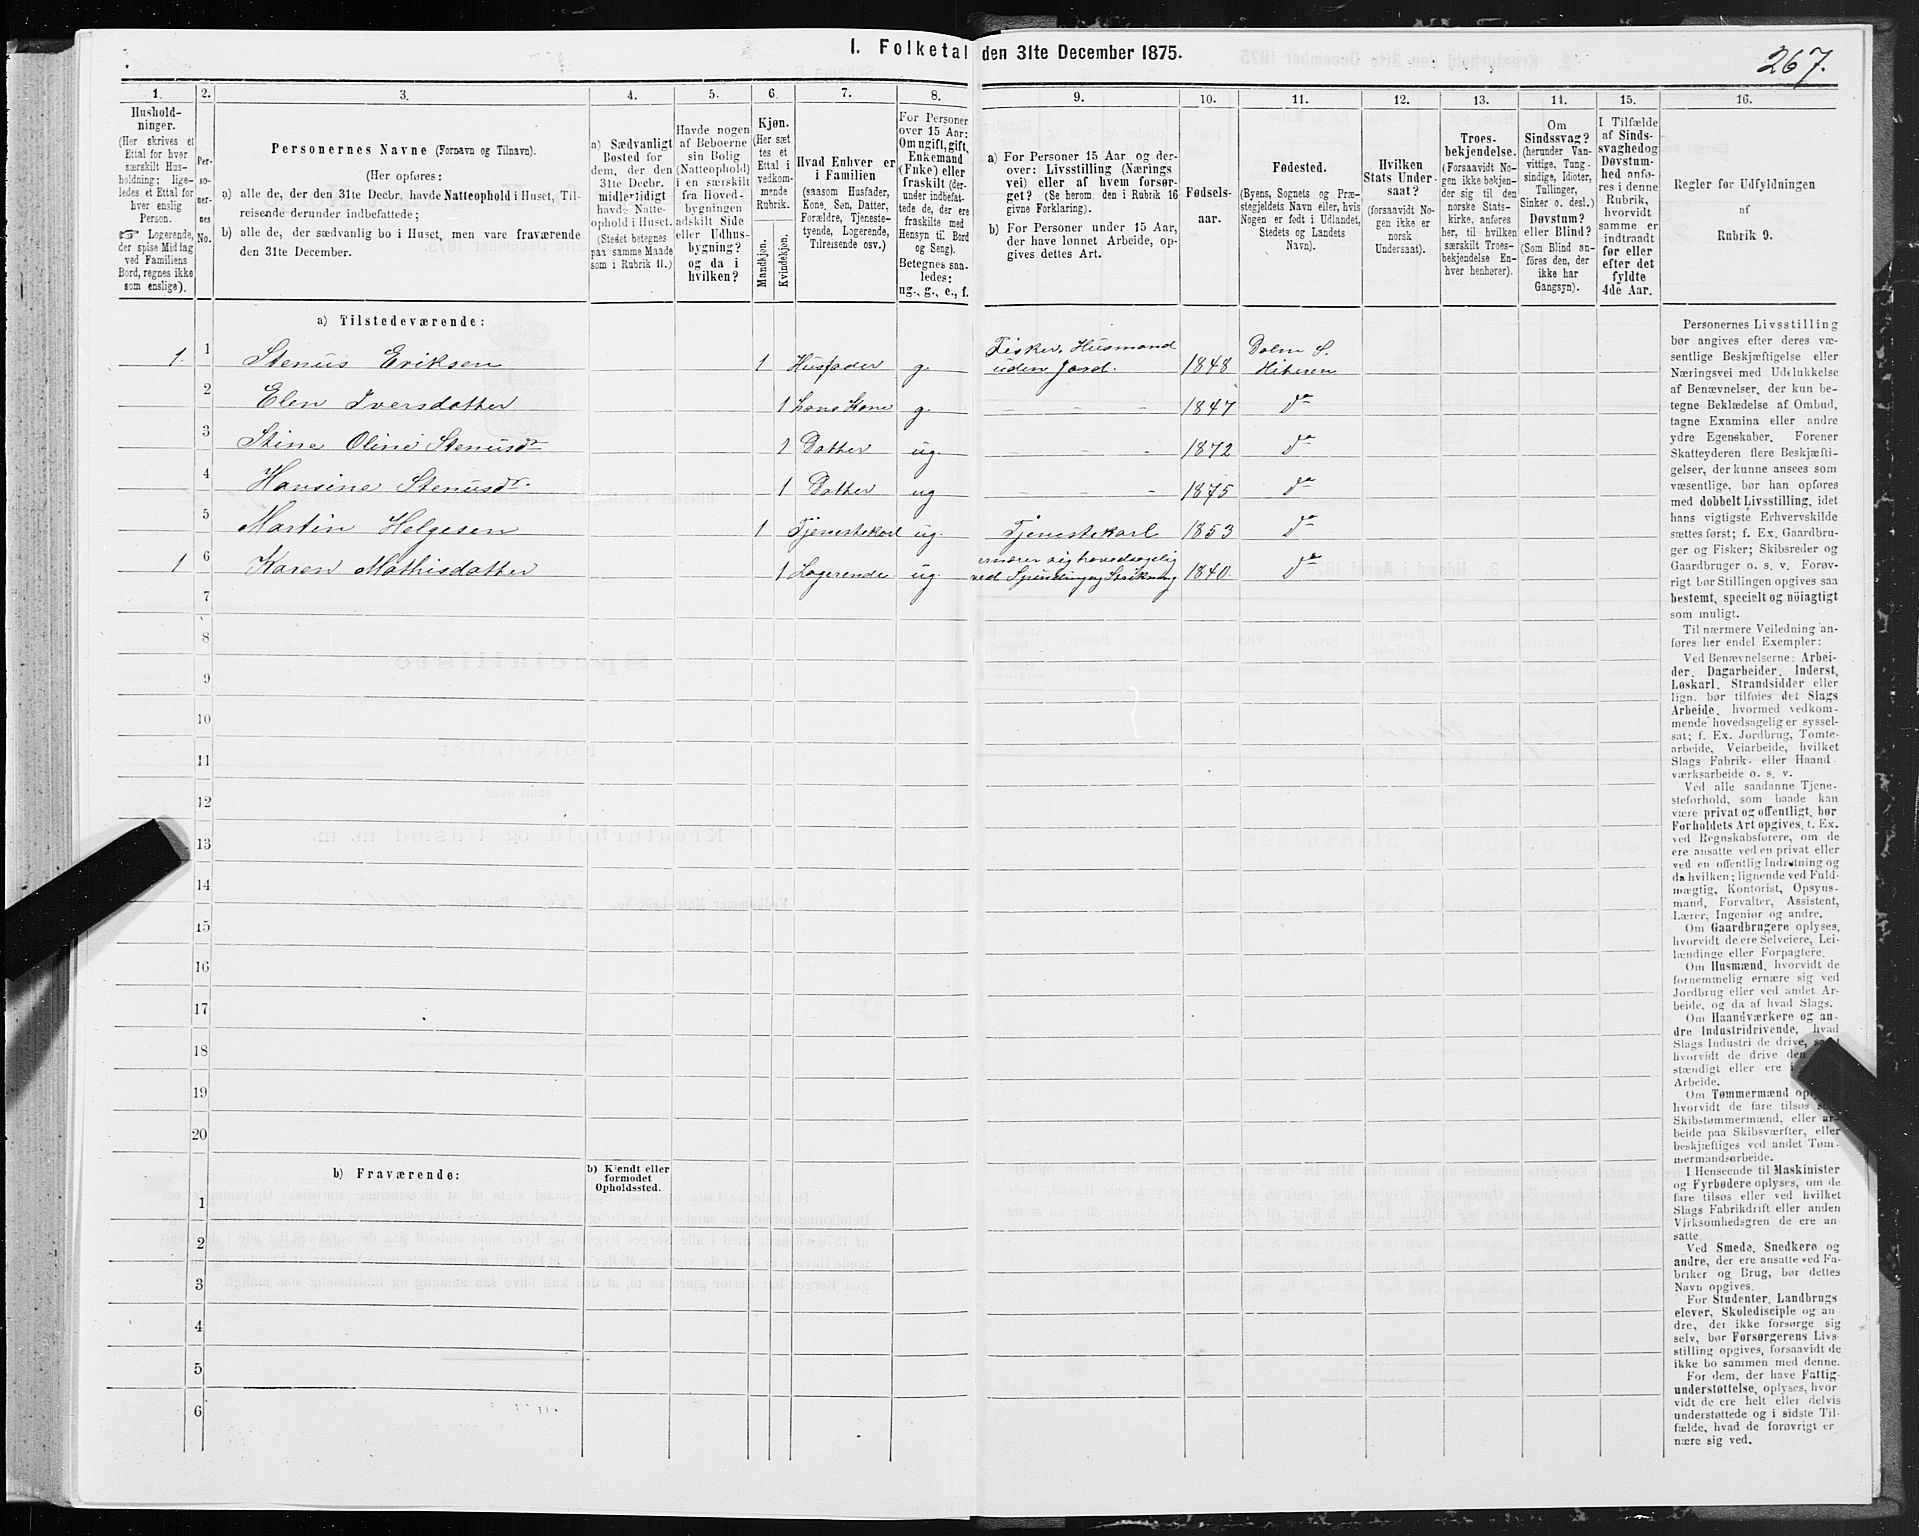 I. Folketal den 31te December 1875.
267.
1.
2.
3.
4.
5.
6.
7.
8.
9.
10.
11.
12.
13.
14.
15.
16.
Hushold-
ninger.
(Her skrives et
Ettal for hver
særskilt Hus-
holdning; lige-
ledes et Ettal for
hver enslig
Person.
☞ Logerende,
der spise Middag
ved Familiens
Bord, regnes ikke
som enslige).
Per-
so-
ner-
nes
No.
Personernes Navne (Fornavn og Tilnavn).
(Her opføres:
a) alle de, der den 31te Decbr. havde Natteophold i Huset, Til-
reisende derunder indbefattede;
b) alle de, der sædvanlig bo i Huset, men vare fraværende
den 31te December.
a) Sædvanligt
Bosted for
dem, der den
31te Decbr.
midlertidigt
havde Natte-
ophold i Huset.
(Stedet betegnes
paa samme Maade
som i Rubrik 11.)
Havde nogen
af Beboerne
sin Bolig
(Natteophold)
i en særskilt
fra Hoved-
bygningen
adskilt Side
eller Udhus-
bygning?
og da i
hvilken?
Kjøn.
(Her sæt
tes et
Ettal i
vedkom-
mende
Rubrik.
Mandkjøn.
Kvindekjøn.
Hvad Enhver er
i Familien
(saasom Husfader,
Kone, Søn, Datter,
Forældre, Tjeneste-
tyende, Logerende,
Tilreisende osv.)
For Personer
over 15 Aar:
Om ugift, gift,
Enkemand
(Enke) eller
fraskilt (der-
under indbefat-
tede de, der ere
fraskilte med
Hensyn til Bord
og Seng).
Betegnes saa-
ledes:
ug., g., e., f.
a) For Personer 15 Aar og der-
over: Livsstilling (Nærings
vei) eller af hvem forsør-
get? (Se herom, den i Rubrik 16
givne Forklaring).
b) For Personer under 15 Aar,
der have lønnet Arbeide, op-
gives dettes Art.
Fødsels-
aar.
Fødested.
(Byens, Sognets og Præ-
stegjeldets Navn eller, hvis
Nogen er født i Udlandet,
Stedets og Landets
Navn).
Hvilken
Stats Under-
saat?
(forsaavidt No-
gen ikke er
norsk
Undersaat).
Troes-
bekjendelse.
(Forsaavidt No-
gen ikke bekjen-
der sig til den
norske Stats-
kirke, anføres
her, til hvilken
særskilt Troes-
bekjendelse En-
hver henhører).
Om
Sindssvag?
(herunder Van-
vittige, Tung-
sindige, Idioter,
Tullinger,
Sinker o. desl.)
Døvstum?
eller Blind?
(Som Blind an-
føres den, der
ikke har
Gangsyn).
I Tilfælde
af Sinds-
svaghedog
Døvstum-
hed anfø-
res i denne
Rubrik,
hvorvidt
samme er
indtraadt
før eller
efter det
fyldte
4de Aar.
Regler for Udfyldningen
af
Rubrik 9.
a) Tilstedeværende:
1. 1 Stenus Eriksen 1 Husfader g. Fisker, Husmand uden Jord. 1848 Dolm S. Hiteren
2 Elen Iversdatter 1 hans Kone g. - - - 1847 do
3 Stine Oline Stenusdr 1 Datter ug. - - - 1872 do
4 Hansine Stenusdr. 1 Datter ug - - - 1875 do
5 Martin Helgesen 1 Tjenestekarl ug. Tjenestekarl 1853 do
1 6 Karen Mathisdatter 1 Logerende ug. ernærer sig hovedsagelig ved Spinding og Strikning 1840. do
7
8
9
10
11
12
13
14
15
16
17
18
19
20
b) Fraværende:
b) Kjendt eller
formodet
Opholdssted.
1
2
3
4
5
6
Personernes Livsstilling
bør angives efter deres væ-
sentlige Beskjæftigelse eller
Næringsvei med Udelukkelse
af Benævnelser, der kun be-
tegne Beklædelse af Ombud,
tagne Examina eller andre
ydre Egenskaber. Forener
Skatteyderen flere Beskjæfti-
gelser, der kunne ansees som
væsentlige, bør han opføres
med dobbelt Livsstilling, idet
hans vigtigste Erhvervskilde
sættes først; f. Ex. Gaardbru-
ger og Fisker; Skibsreder og
Gaardbruger o. s. v. Forøv-
rigt bør Stillingen opgives saa
bestemt, specielt og nöiagtigt
som muligt.
Til nærmere Veiledning an-
føres her endel Exempler:
Ved Benævnelserne: Arbei-
der, Dagarbeider, Inderst,
Løskarl, Strandsidder eller
lign. bør tilføies det Slags
Arbeide, hvormed vedkom-
mende hovedsagelig er syssel-
sat; f. Ex. Jordbrug, Tomte-
arbeide, Veiarbeide, hvilket
Slags Fabrik- eller Haand
værksarbeide o. s. v.
Ved alle saadanne Tjene-
steforhold, som baade kan
være privat og offentligt, bør
Forholdets Art opgives, t. Ex.
ved Regnskabsførere, om de
ere ansatte ved en privat eller
ved en offentlig Indretning og
da hvilken; lignende ved Fuld-
mægtig, Kontorist, Opsyns-
mand, Forvalter, Assistent,
Lærer, Ingeniør og andre.
Om Gaardbrugere oplyses,
hvorvidt de ere Selveiere, Lei-
lændinge eller Forpagtere.
Om Husmænd, hvorvidt de
fornemmelig ernære sig ved
Jordbrug eller ved andet Ar-
beide, og da af hvad Slags.
Om Haandværkere og an-
dre Industridrivende, hvad
Slags Industri de drive,
hvorvidt de drive den
stændigt eller ere i
Arbeide.
Om Tømmermænd
hvorvidt de fare tilsøs
Skibstømmermænd, eller ar-
beide paa Skibsværfter, eller
beskjæftiges ved andet Tøm-
mermandsarbeide.
I Henseende til Maskinister
og Fyrbødere oplyses, om de
fare tilsøs eller ved hvilket
Slags Fabrikdrift eller anden
Virksomhedsgren de ere an-
satte.
Ved Smede, Snedkere og
andre, der ere ansatte ved Fa-
briker og Brug, bør dettes
Navn opgives.
For Studenter, Landbrugs
elever, Skoledisciple og an
dre, der ikke forsørge sig
selv, bør Forsørgerens Livs-
stilling opgives, forsaavidt de
ikke bo sammen med denne.
For dem, der have Fattig-
understøttelse, oplyses, hvor
vidt de ere helt eller delvis
understøttede og i sidste Til-
fælde, hvad de forøvrigt er
nære sig ved.